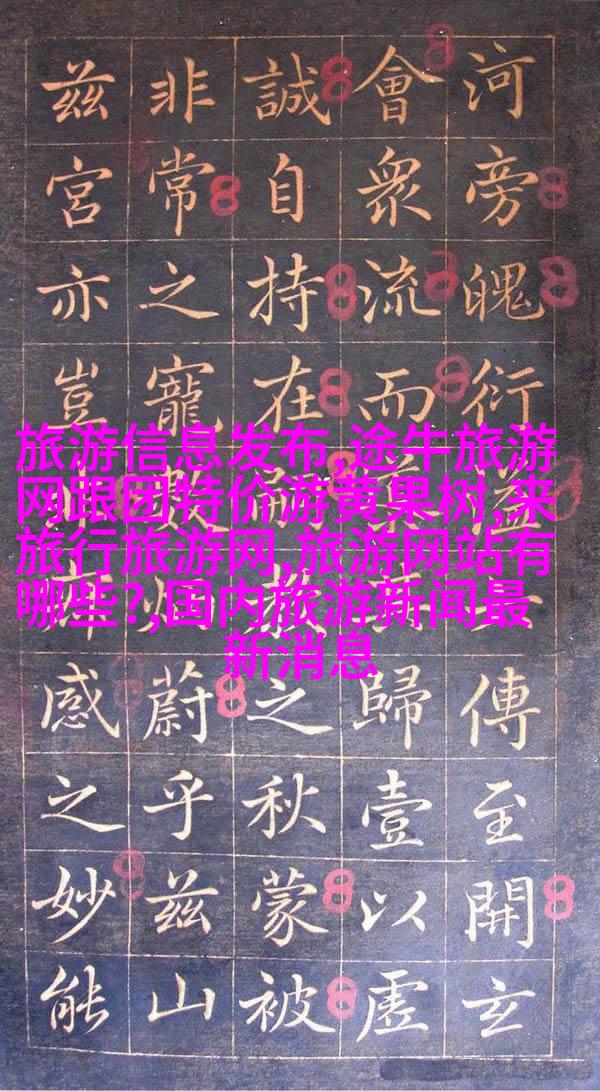 河旁魄衍溢傳至開玄
會衆流而歸壹以虛
誠自持在之秋蒙被
非常之寵蔚乎兹山
兹宮亦豈感之妙能
旅游信息发布,途牛旅游
网跟团特价游黄果树,来
旅行旅游网,旅游网站有
哪些?,国内旅游新闻最
新消息